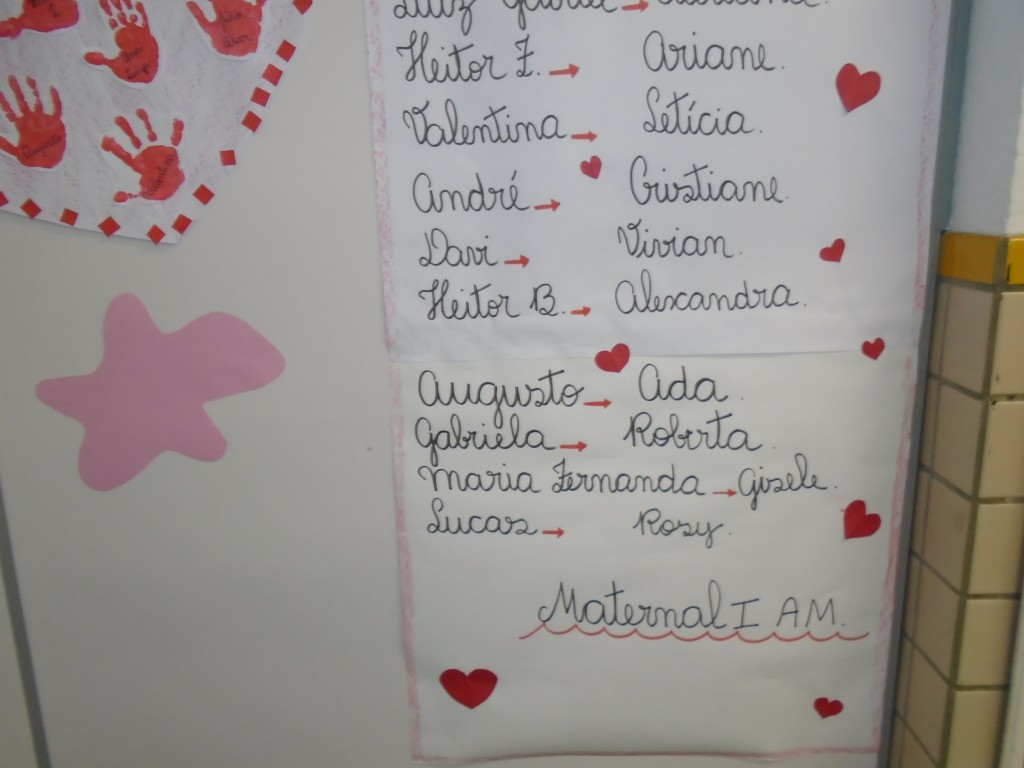 Heitor Z. → Ariane.
Valentina → Letícia.
André → Cristiane.
Davi → Vivian.
Heitor B. → Alexandra.
Augusto → Ada.
Gabriela → Roberta.
Maria Fernanda → Gisele.
Lucas → Rosy.
Maternal I AM.